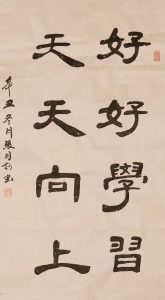 好好學習
天天向上
辛丑冬月張月